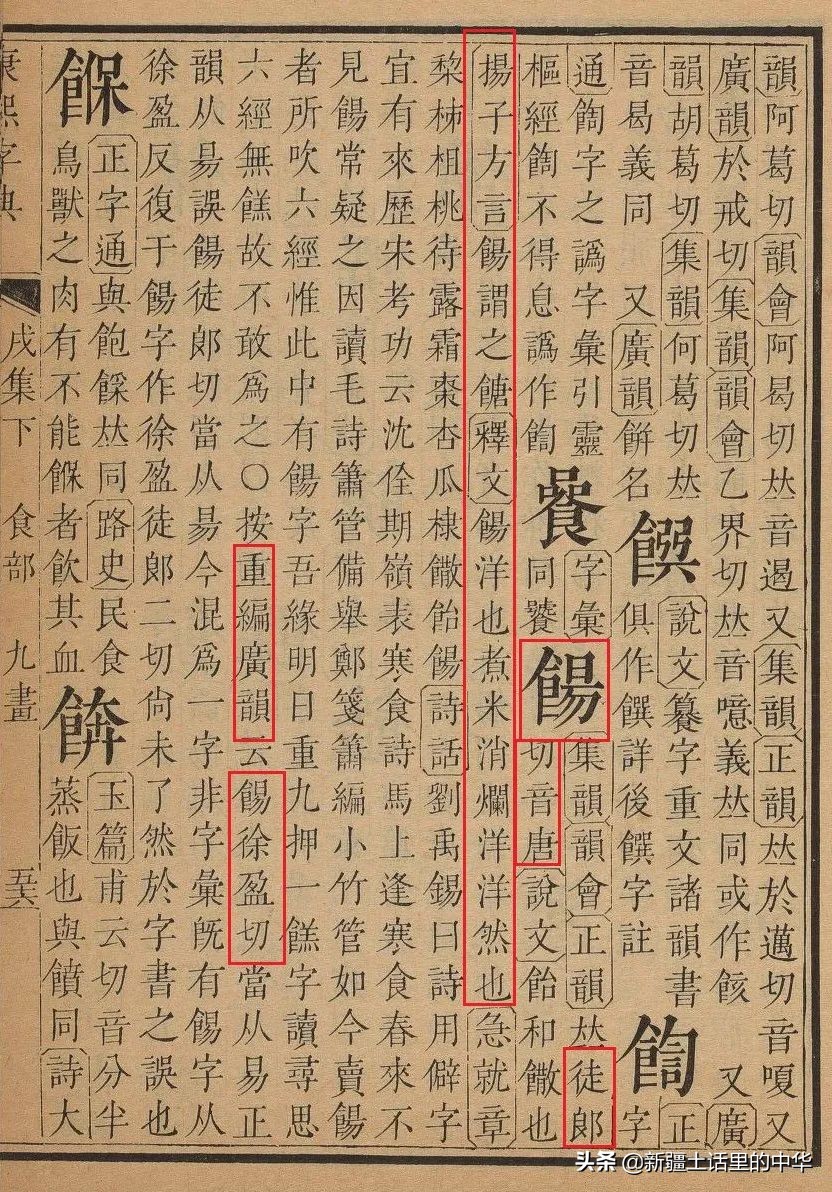 韻阿葛切韻會阿曷切𠀤音遏又集韻正韻𠀤於邁切音嗄又
廣韻於戒切集韻韻會乙界切𠀤音噫義𠀤同或作餩 又廣
韻胡葛切集韻何葛切𠀤
音曷義同 又廣韻餅名
饌
說文籑字重文諸韻書
俱作饌詳後饌字註
正
字
通字之譌字彙引靈
樞經不得息譌作
字彙
同饕
餳
集韻韻會正韻𠀤徒郎
切音唐說文飴和饊也
揚子方言餳謂之餹釋文餳洋也煮米消爛洋洋然也急就章
棃柹柤桃待露霜棗杏瓜棣饊飴餳詩話劉禹錫曰詩用僻字
宜有來歷宋考功云沈佺期嶺表寒食詩馬上逢寒食春來不
見餳常疑之因讀毛詩簫管備舉鄭箋簫編小竹管如今賣餳
者所吹六經惟此中有餳字吾緣明日重九押一餻字讀尋思
六經無餻故不敢爲之○按重編廣韻云餳徐盈切當从易正
韻从昜誤餳徒郎切當从昜今混爲一字非字彙旣有餳字从
徐盈反復于餳字作徐盈徒郎二切尙未了然於字書之誤也
正字通與飽𠀤同路史民食
鳥獸之肉有不能者飮其血
餴
玉篇甫云切音分半
蒸飯也與饙同詩大
康熙字典 戌集下 食部 九畫
头条 @新疆土话里的中华